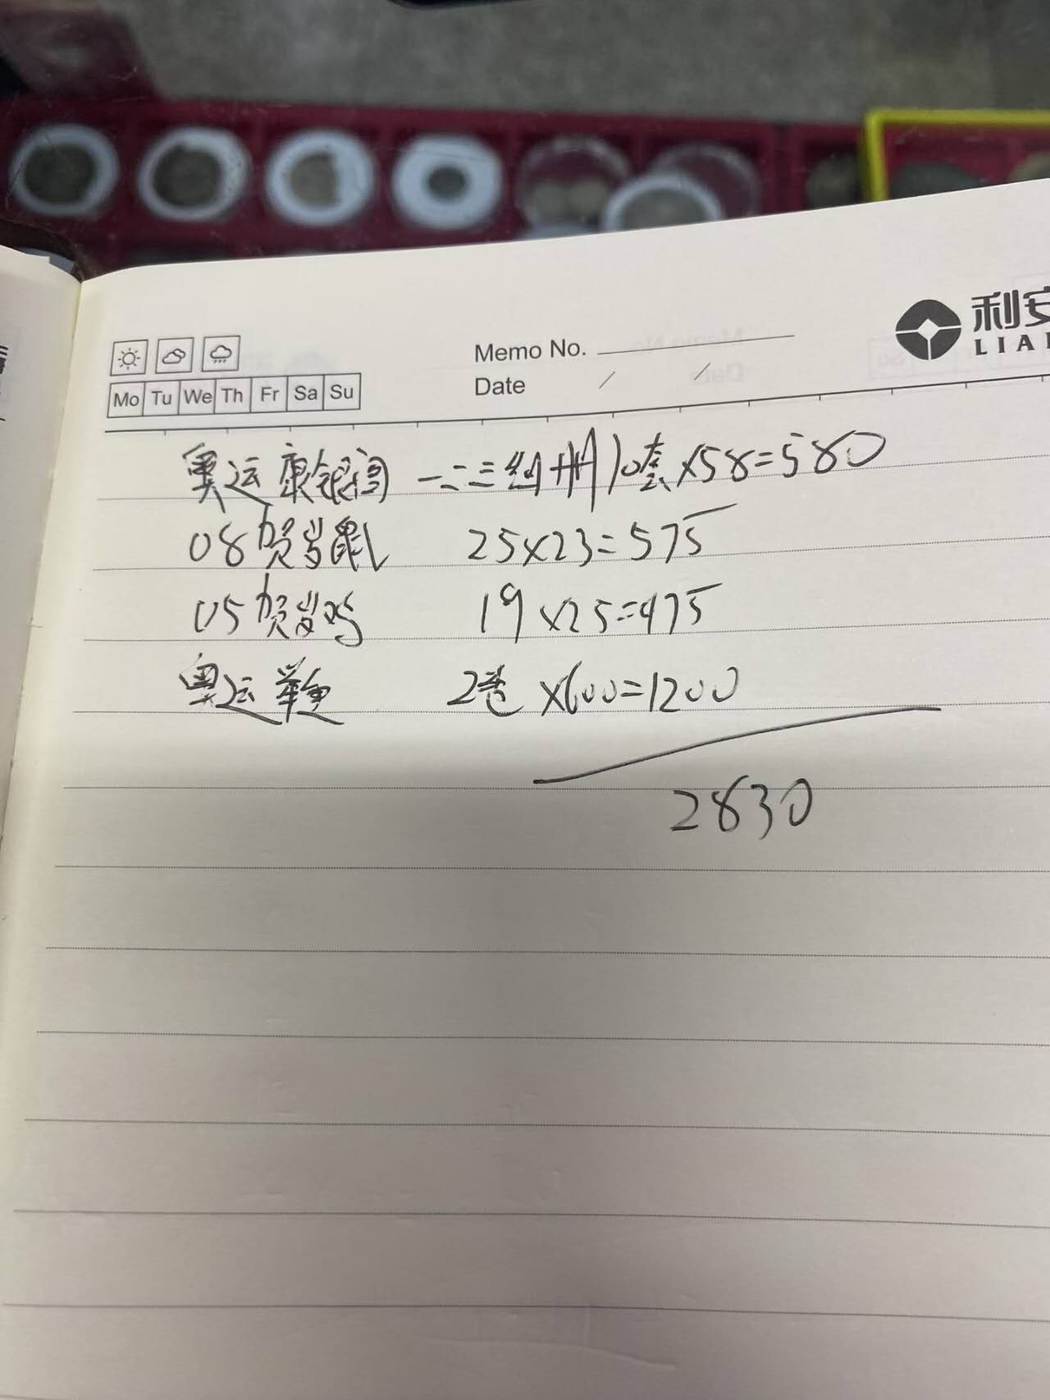 利安
LIA
Memo No.
Mo Tu We Th Fr Sa Su
Date / /
奥运康银阁 一二三组册 10套×58=580
08贺岁鼠 25×23=575
05贺岁鸡 19×25=475
奥运举重 2卷×600=1200
2830